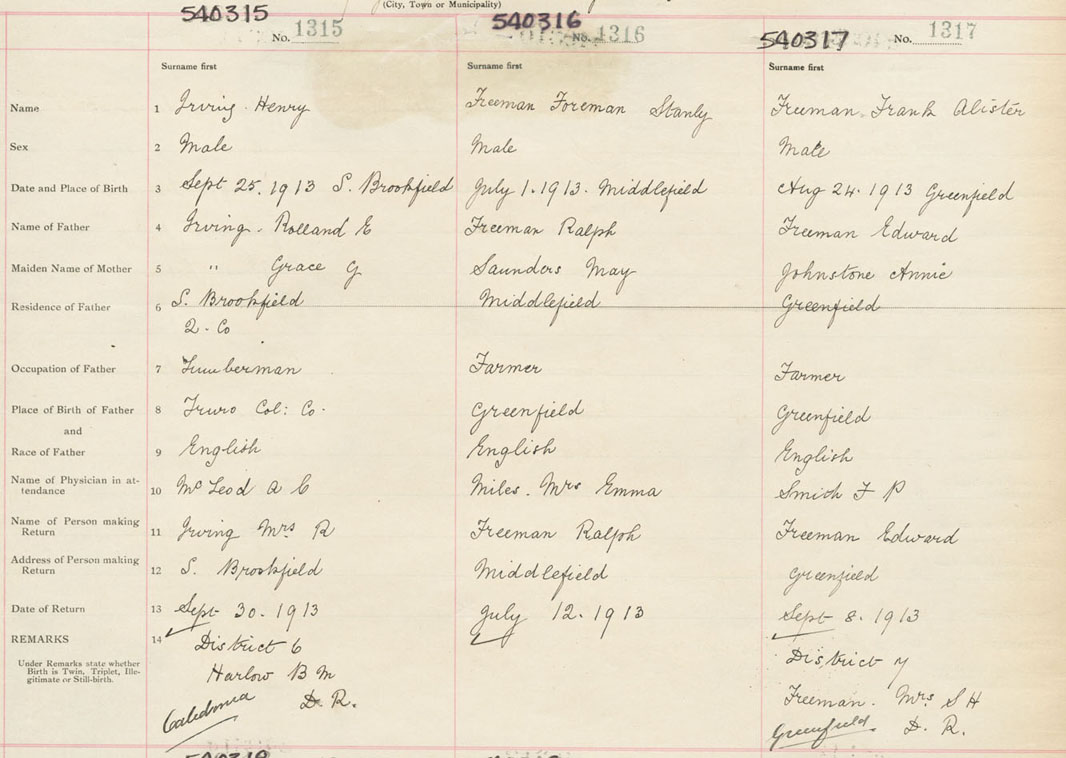 (City, Town or Municipality)
540315
No. 1315
540316
No. 1316
540317
No. 1317
Surname first
Surname first
Surname first
Name 1 Irving Henry
Freeman Foreman Stanly
Freeman Frank Alister
Sex 2 Male
Male
Male
Date and Place of Birth 3 Sept 25. 1913 S. Brookfield
July 1. 1913. Middlefield
Aug 24. 1913 Greenfield
Name of Father 4 Irving. Rolland E
Freeman Ralph
Freeman Edward
Maiden Name of Mother 5 " Grace G
Saunders May
Johnstone Annie
Residence of Father 6 S. Brookfield
Q. Co
Middlefield
Greenfield
Occupation of Father 7 Lumberman
Farmer
Farmer
Place of Birth of Father 8 Truro Col: Co.
Greenfield
Greenfield
and
Race of Father 9 English
English
English
Name of Physician in at-
tendance 10 McLeod A C
Miles. Mrs Emma
Smith F P
Name of Person making
Return 11 Irving Mrs R
Freeman Ralph
Freeman Edward
Address of Person making
Return 12 S. Brookfield
Middlefield
Greenfield
Date of Return 13 Sept 30. 1913
July 12. 1913
Sept 8. 1913
REMARKS 14
Under Remarks state whether
Birth is Twin, Triplet, Ille-
gitimate or Still-birth.
District 6
Harlow B M
Caledonia D. R.
District 7
Freeman. Mrs S H
Greenfield. D. R.